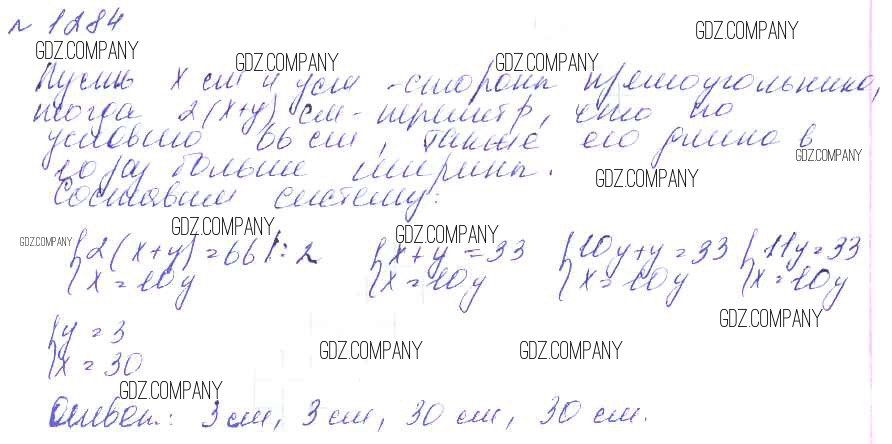 № 1284
GDZ.COMPANY
GDZ.COMPANY
GDZ.COMPANY GDZ.COMPANY
Пусть x см и y см - стороны прямоугольника,
тогда 2(x+y) см - периметр, что по
условию 66 см, также его длина в
GDZ.COMPANY
10 раз больше ширины.
GDZ.COMPANY
Составим систему:
GDZ.COMPANY
GDZ.COMPANY
GDZ.COMPANY
{2(x+y)=66 |:2 {x+y=33 {10y+y=33 {11y=33
{x=10y {x=10y {x=10y {x=10y
GDZ.COMPANY
{y=3
GDZ.COMPANY GDZ.COMPANY
{x=30
GDZ.COMPANY
Ответ: 3 см, 3 см, 30 см, 30 см.